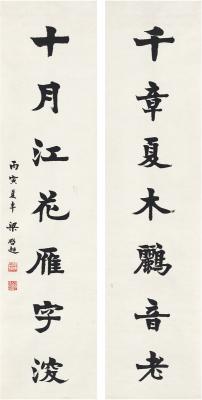 千章夏木鸝音老
十月江花雁字淩
丙寅夏 梁啓超